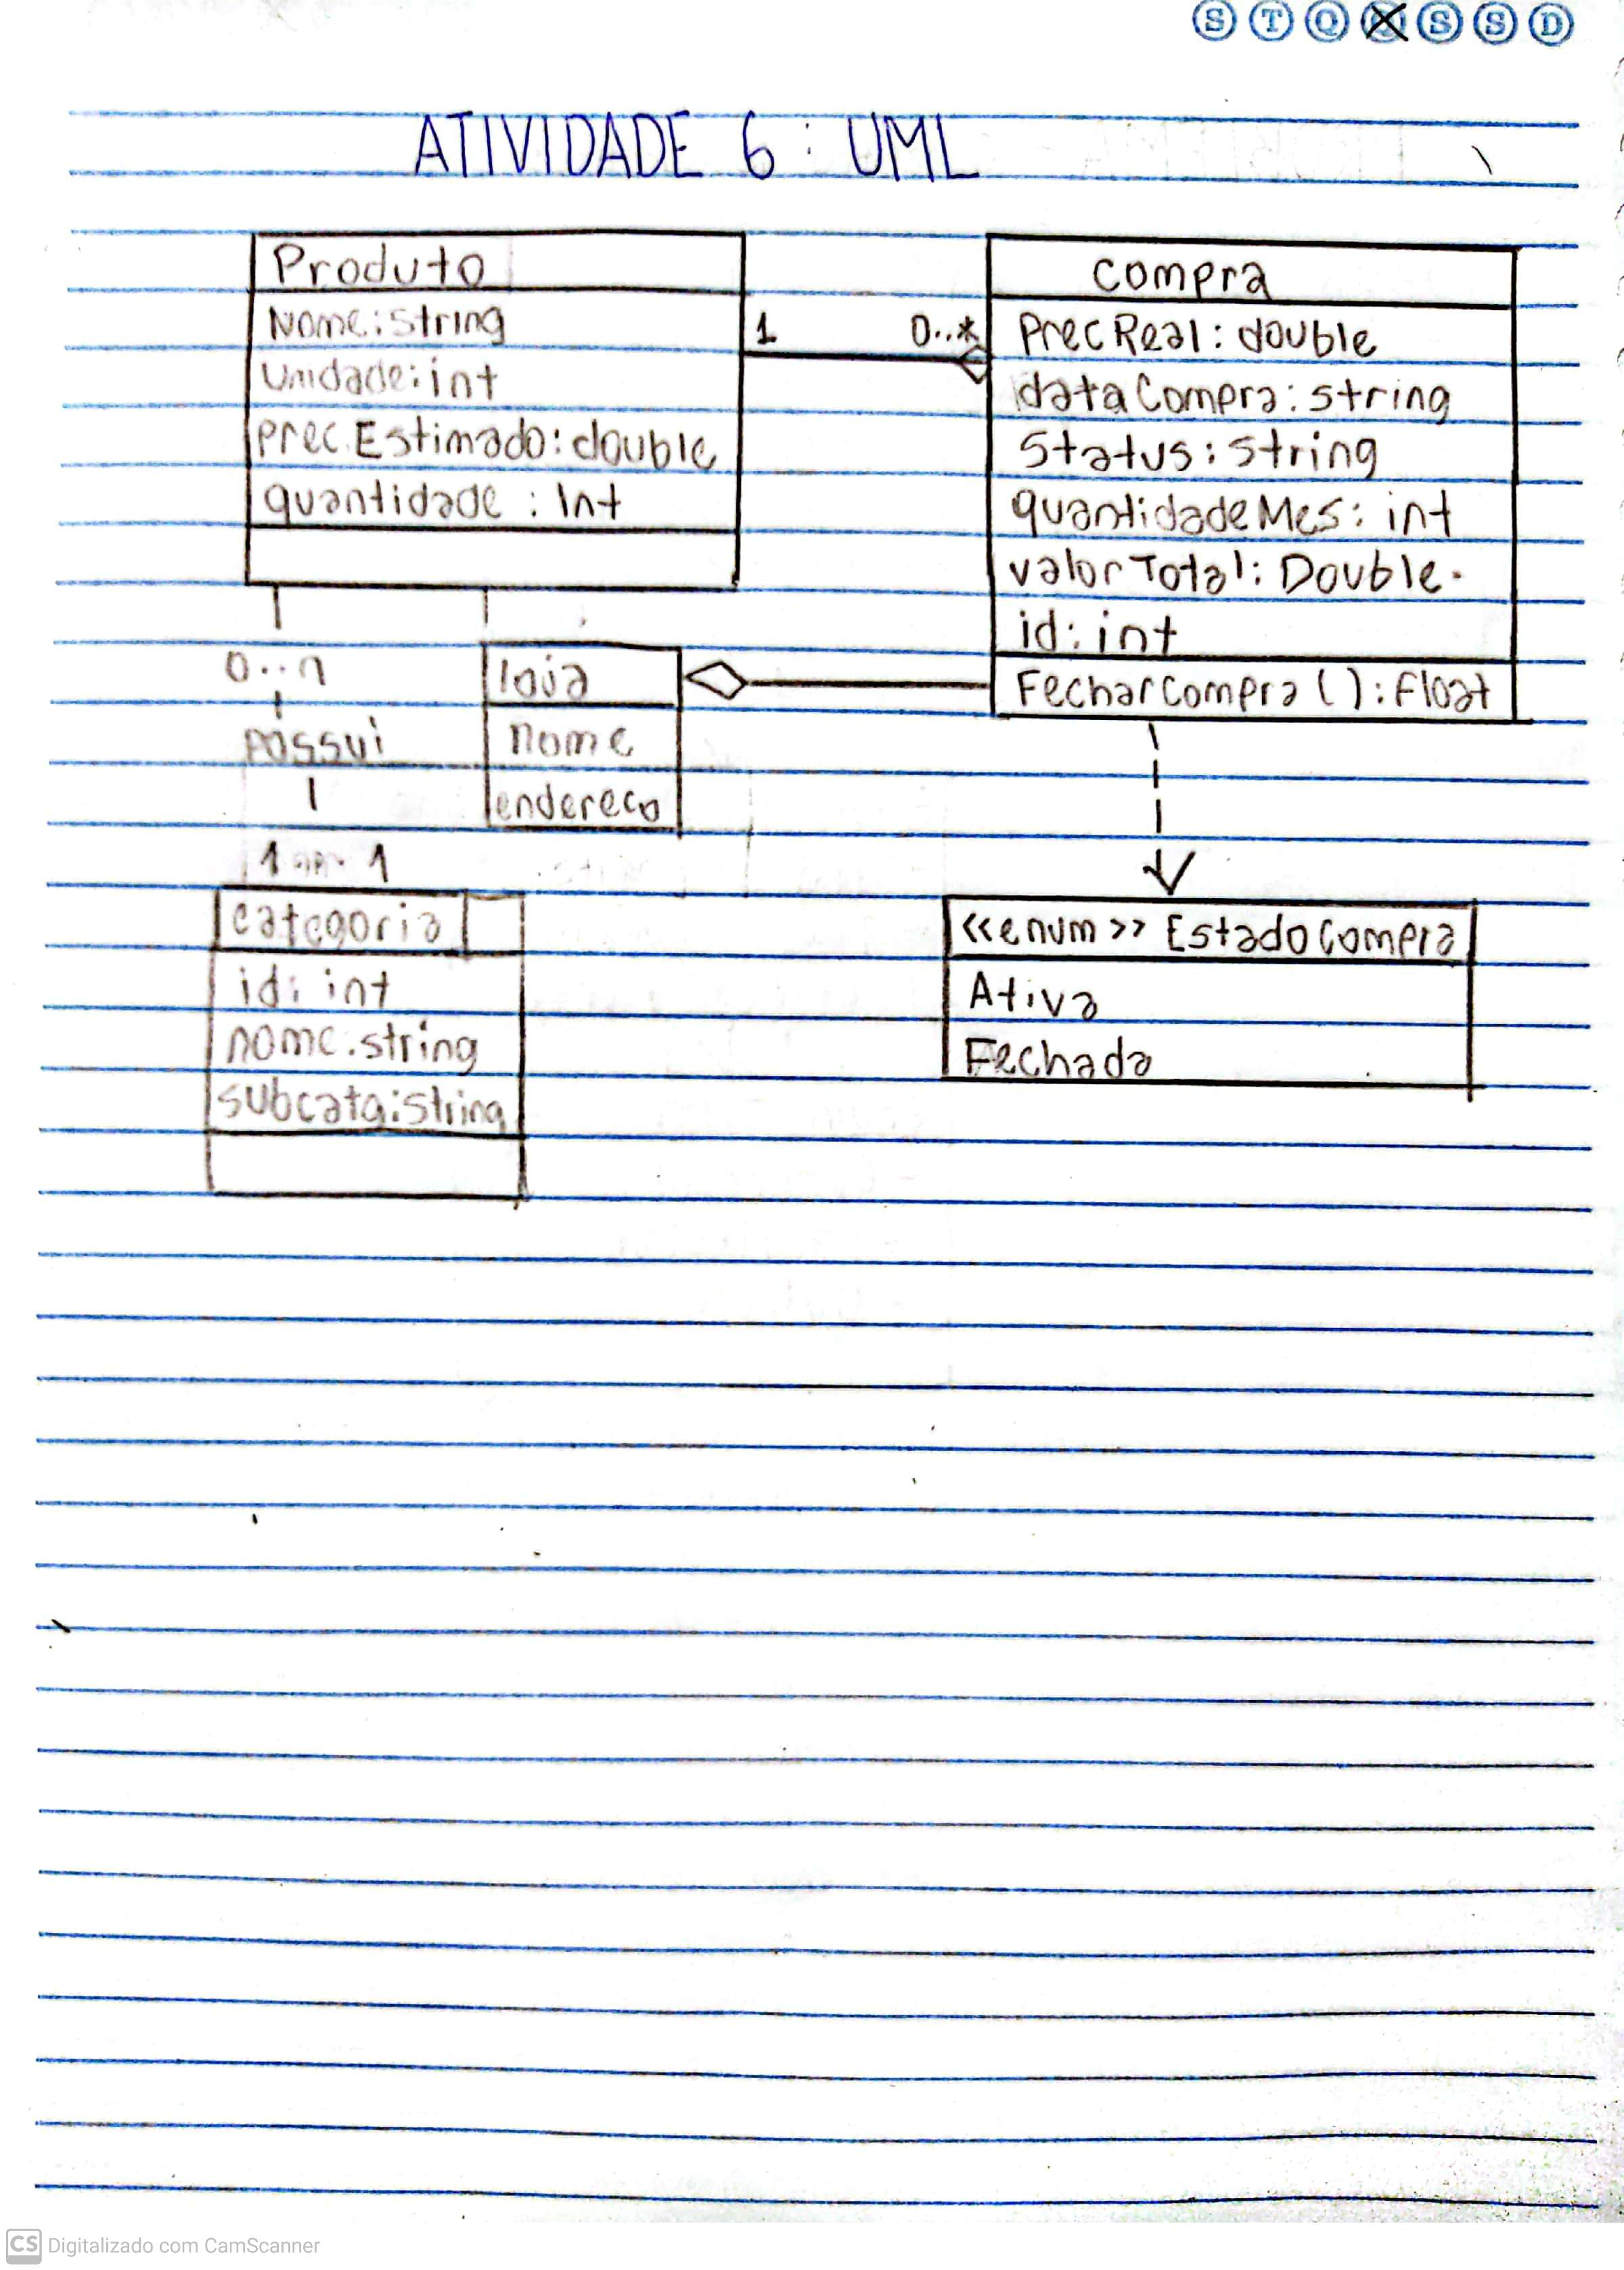 S T Q S S D
ATIVIDADE 6 : UML
Produto
Nome: string
Unidade: int
prec.Estimado: double
quantidade : Int
1 0..*
compra
PrecReal: double
dataCompra: string
Status: string
quantidadeMes: int
valorTotal: Double.
id: int
FecharCompra ( ): Float
0..n
possui
1 1
loja
nome
endereco
categoria
id: int
nome.string
subcatg:string
<<enum>> EstadoCompra
Ativa
Fechada
CS Digitalizado com CamScanner